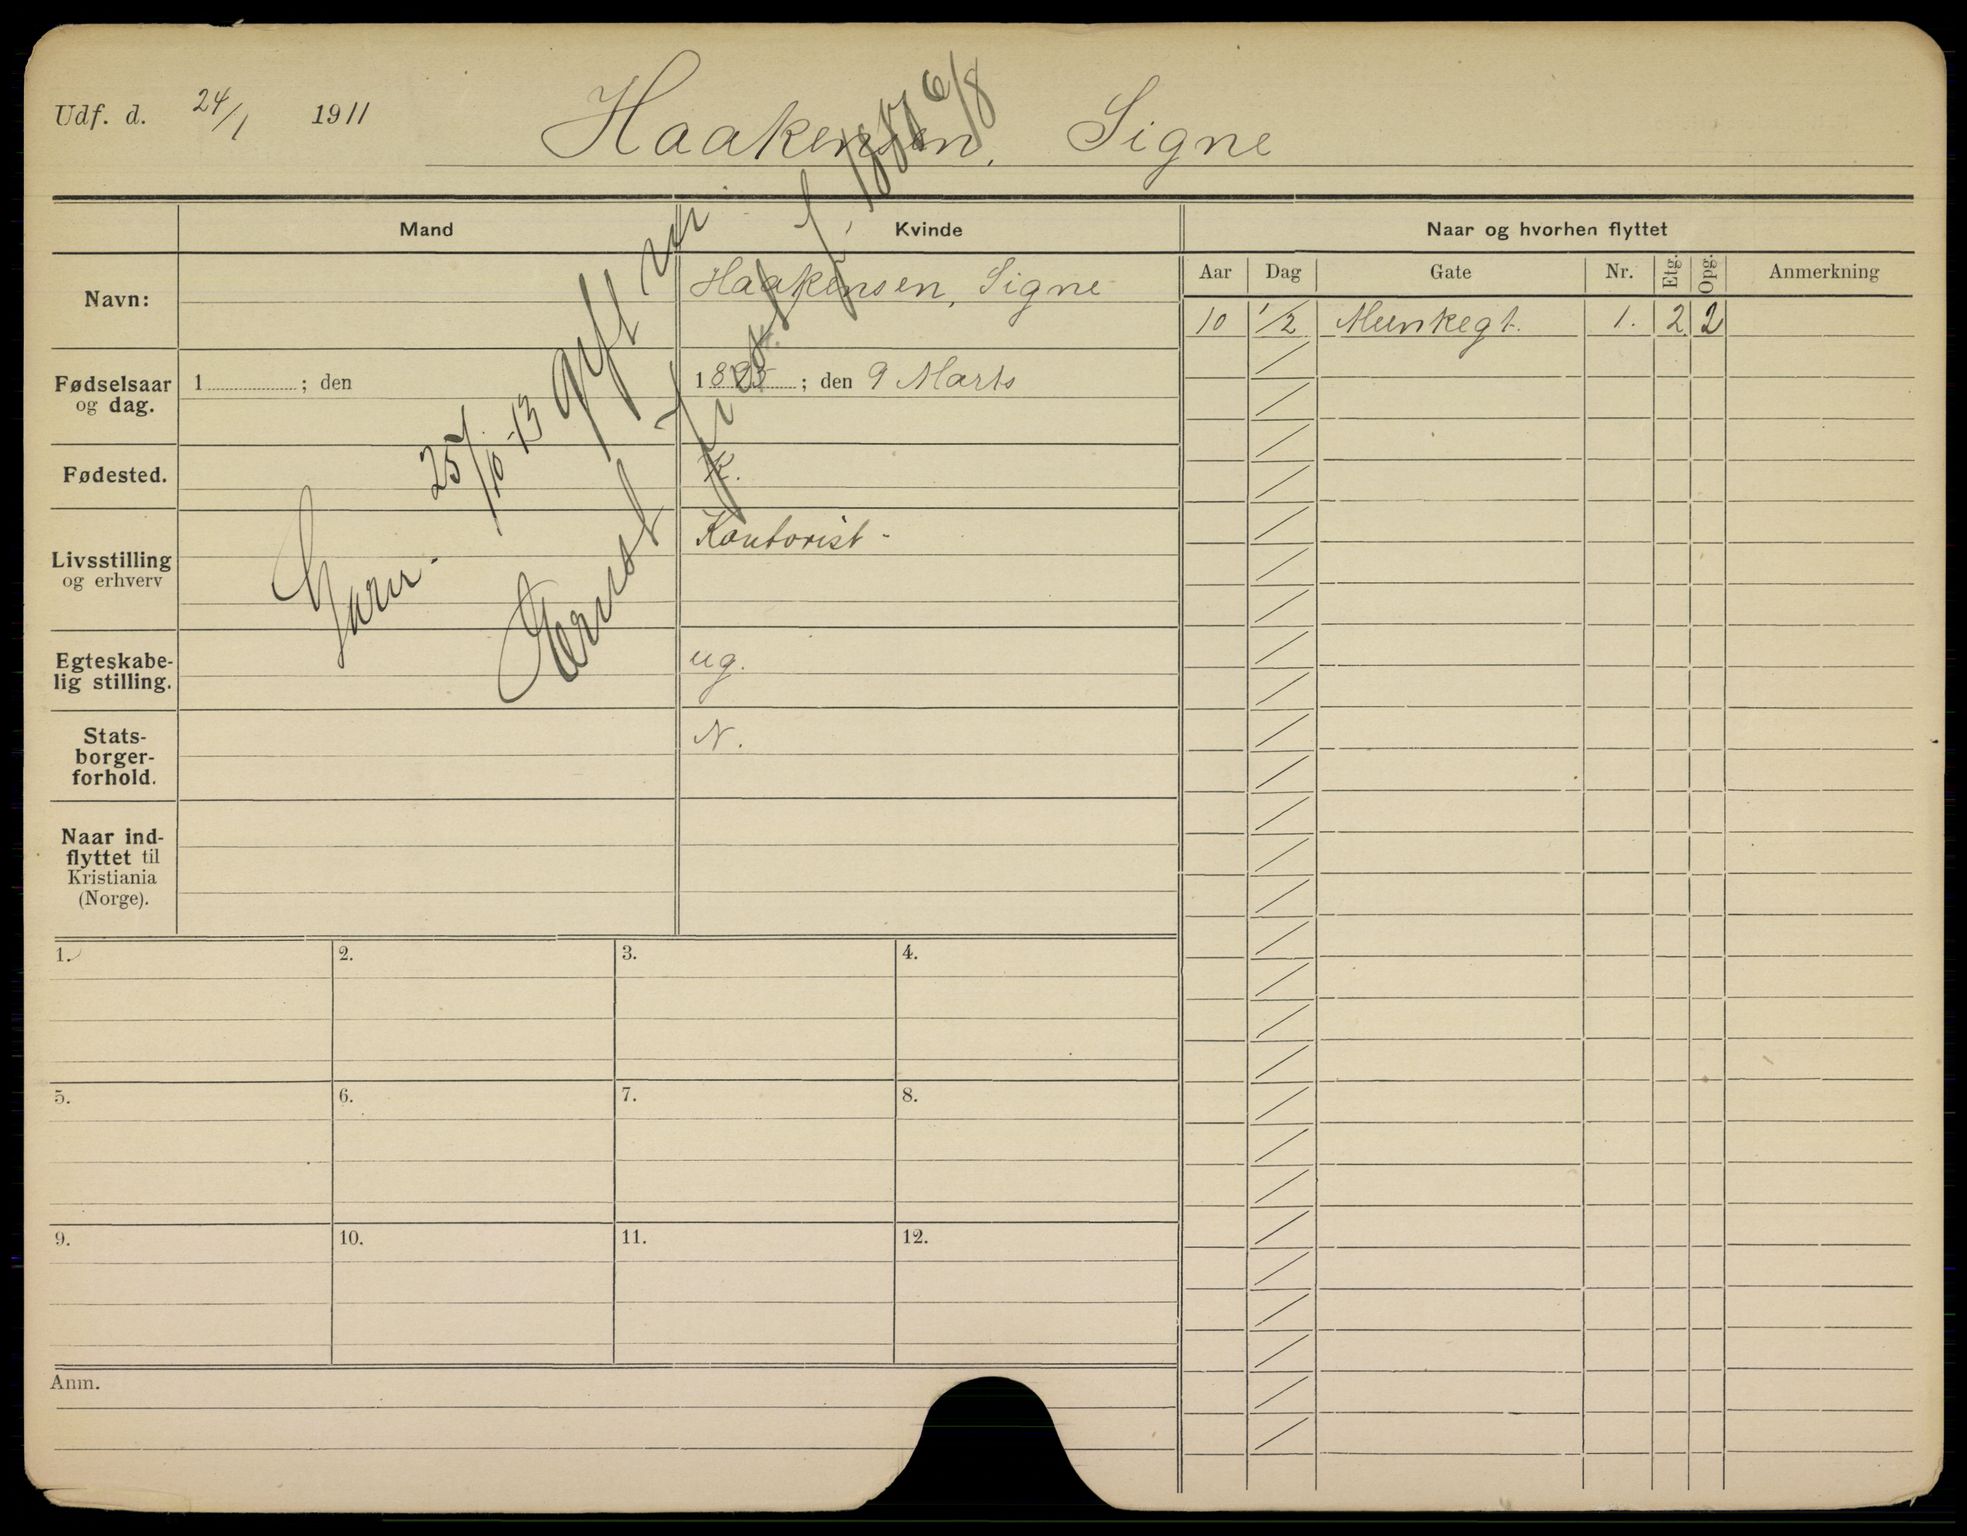 Udf. d. 24/1 1911
Haakensen, Signe
Mand
Kvinde
Naar og hvorhen flyttet
Navn:
Haakensen, Signe
Aar Dag Gate Nr. Etg. Opg. Anmerkning
10 1/2 Munkegt. 1. 2 2
Fødselsaar
og dag.
1 ; den
1885 ; den 9 Marts
Fødested.
K.
Livsstilling
og erhverv
Kontorist -
Egteskabe-
lig stilling.
ug.
Stats-
borger-
forhold.
N.
Naar ind-
flyttet til
Kristiania
(Norge).
25/10-13 gift m.
Ernst f. 6/8
1. 2. 3. 4.
5. 6. 7. 8.
9. 10. 11. 12.
Anm.